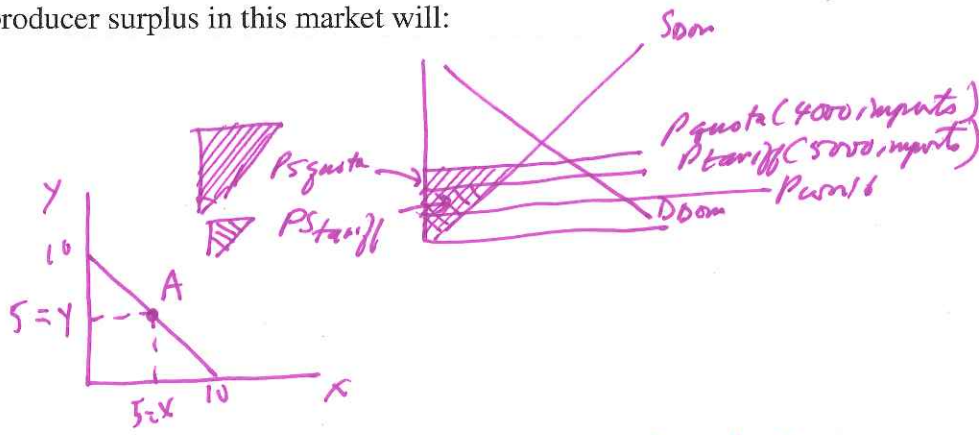 roducer surplus in this market will:
SDom
Pquota (4000 imports)
Ptariff (5000 imports)
Pworld
DDom
PSquota
PStariff
Y
10
A
5=Y
5=X
10
X